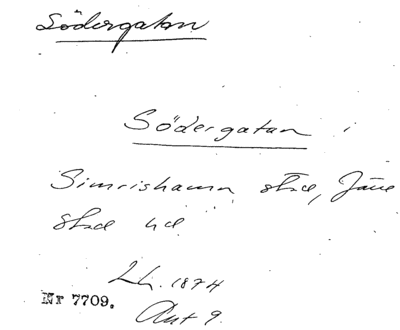 Södergatan
Södergatan i
Simrishamn stad, Järre
stad nd
Lh. 1874
Nr 7709.
Ant 9.